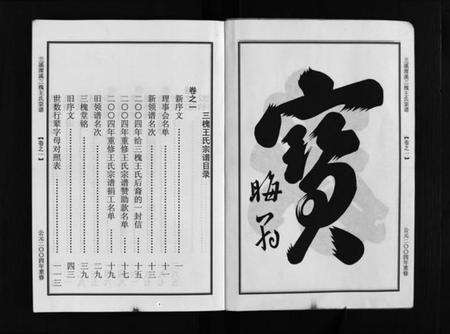 三溪渭溪三槐王氏宗谱
【卷之一】
公元二〇〇四年重修
寶
晦翁
三槐王氏宗谱目录
卷之一
新序文 一
理事会名单 十一
新领谱名次 十三
二〇〇四年给三槐王氏后裔的一封信 十五
二〇〇四年重修王氏宗谱赞助款名单 十七
二〇〇四年重修王氏宗谱捐工名单 十九
旧领谱名次 二九
三槐堂铭 三九
旧序文 四三
世数行辈字母对照表 一一三
【卷之一】
公元二〇〇四年重修